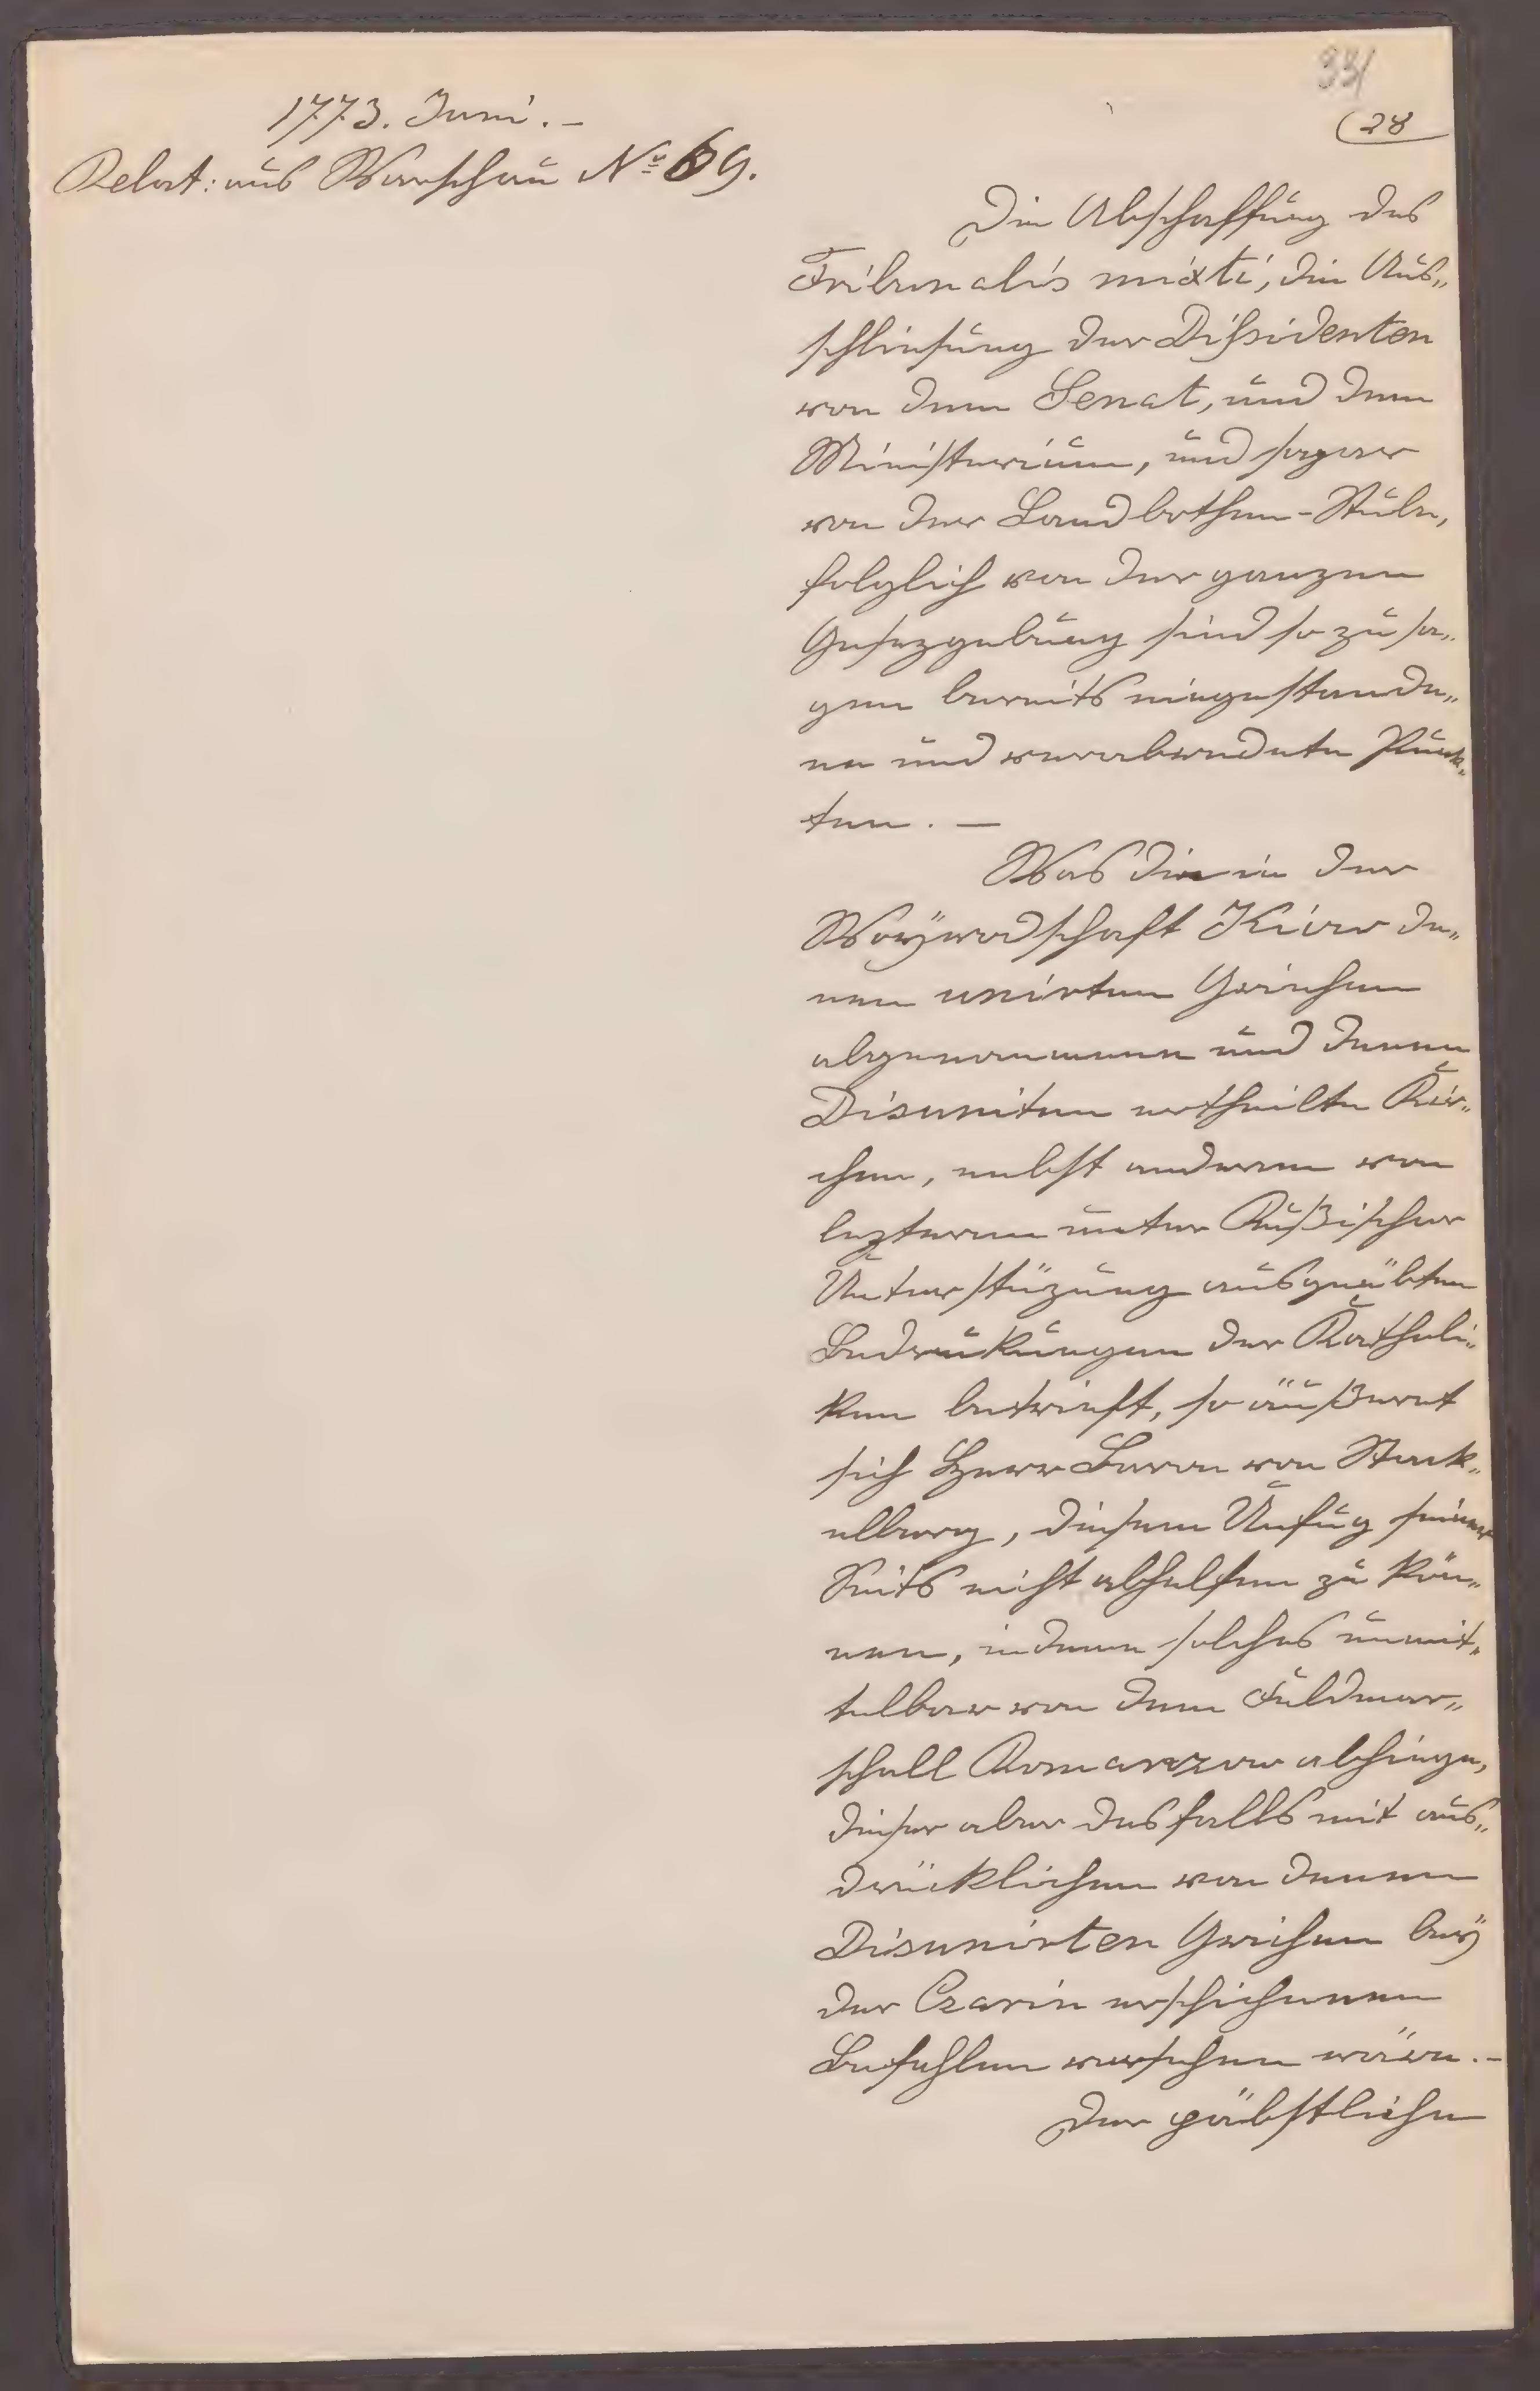 331
28
1773. Juni. –
Relat: aus Warschau No 69.
Die Abschaffung des
Tribunalis mixti, die Aus„
schließung der Dißidenten
von dem Senat, und dem
Ministerium, und sogar
von der Landbothen-Stube,
folglich von der ganzen
Gesezgebung sind so zu sa„
gen bereits eingestande„
ne und verabredete Punk„
ten. —
Was die in der
Woÿwodschaft Kiow de„
nen unirten Griechen
abgenommen und denen
Disuniten ertheilte Kir„
chen, nebst anderen von
lezteren unter Rußischer
Unterstüzung ausgeübten
Bedrukungen der Katholi„
ken betrieft, so äußeret
sich Herr Baron von Stack„
elberg, diesem Unfug seiner
Seits nicht abhelfen zu kön„
nen, indeme solches unmit„
telbar von dem Feldmar„
schall Romanzow abhinge,
dieser aber desfalls mit aus„
drücklichen von denen
Disunirten Griechen beÿ
der Czarin erschichenen
Befehlen versehen wäre. –
Der päbstliche